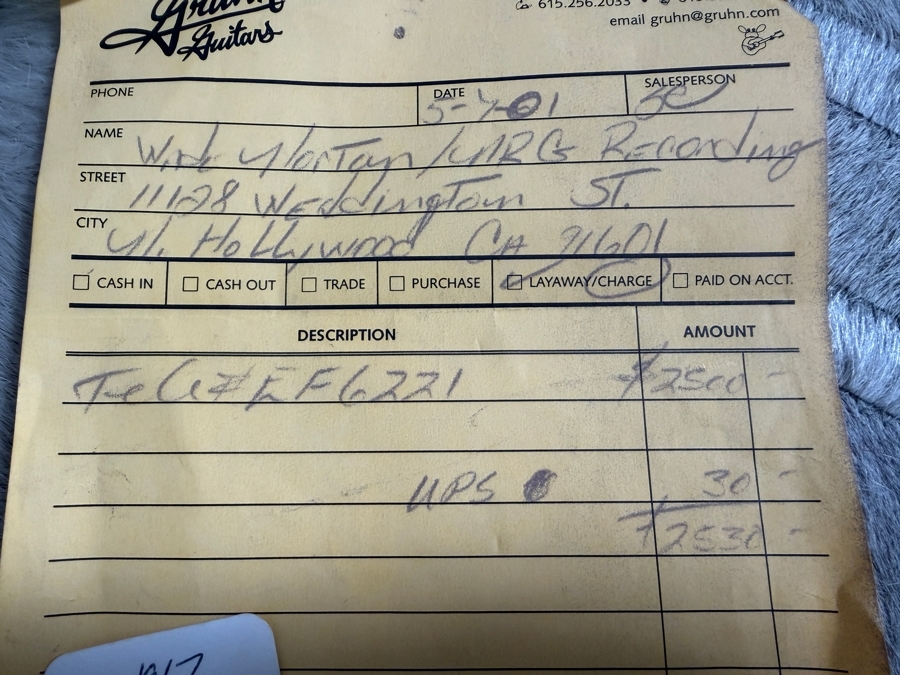 Gruhn
Guitars
615.256.2033
email gruhn@gruhn.com
PHONE
DATE 5-7-01
SALESPERSON
NAME Norton / NRG Recording
STREET 11128 Weddington ST.
CITY N. Hollywood CA 91601
CASH IN CASH OUT TRADE PURCHASE LAYAWAY/CHARGE PAID ON ACCT.
DESCRIPTION AMOUNT
EF6221 $2500 -
UPS 30 -
$2530 -